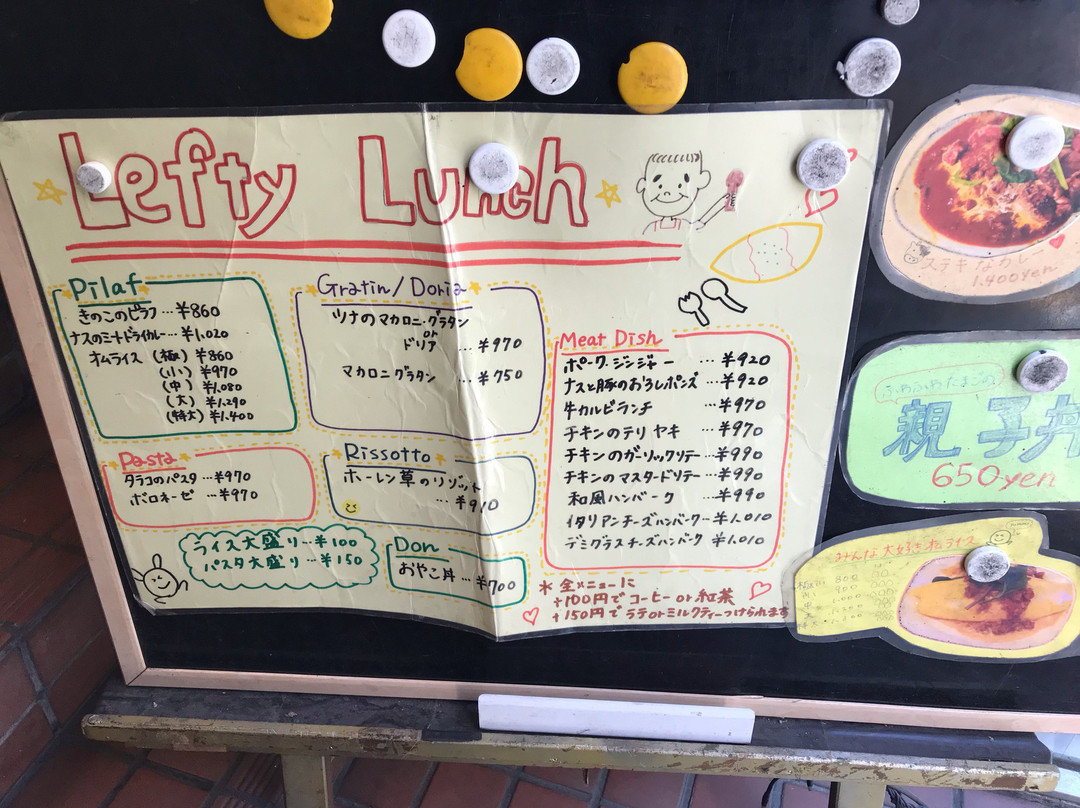 Lefty Lunch
Pilaf
きのこのピラフ…¥860
ナスのミートドライカレー…¥1,020
オムライス (極小) ¥860
(小) ¥970
(中) ¥1,080
(大) ¥1,290
(特大) ¥1,400
Gratin/Doria
ツナのマカロニ・グラタン
or
ドリア …¥970
マカロニグラタン …¥750
Pasta
タラコのパスタ…¥970
ボロネーゼ …¥970
Rissotto
ホーレン草のリゾット
…¥910
ライス大盛り…¥100
パスタ大盛り…¥150
Don
おやこ丼…¥700
Meat Dish
ポークジンジャー …¥920
ナスと豚のおろしポンズ…¥920
牛カルビランチ …¥970
チキンのテリヤキ …¥970
チキンのガーリックソテー…¥990
チキンのマスタードソテー…¥990
和風ハンバーク …¥990
イタリアンチーズハンバーク…¥1,010
デミグラスチーズハンバーク ¥1,010
*全メニューに
+100円でコーヒーor紅茶
+150円でラテorミルクティーつけられます
ステキなカレー
1.400yen
ふわふわたまごの
親子丼
650yen
みんな大好きオムライス